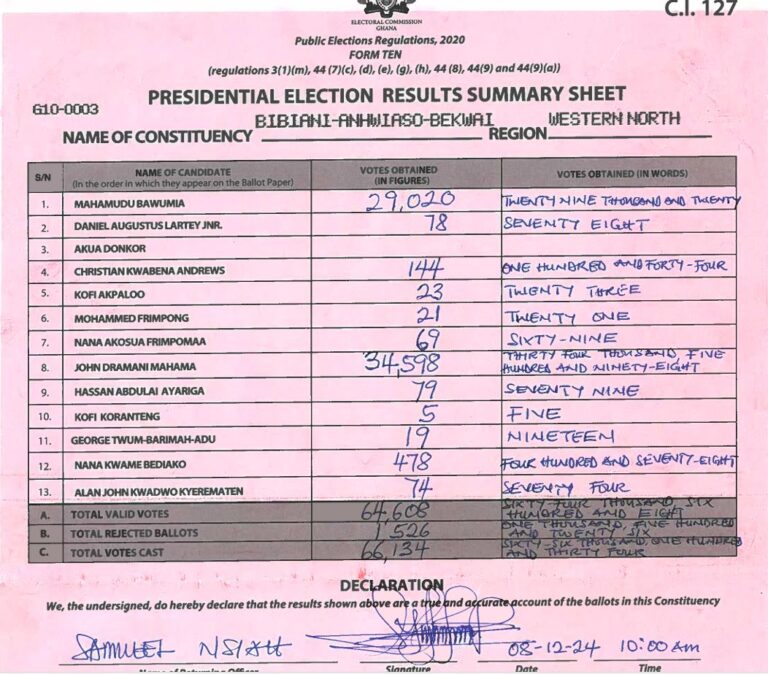 C.I. 127
ELECTORAL COMMISSION
GHANA
Public Elections Regulations, 2020
FORM TEN
(regulations 3(1)(m), 44 (7)(c), (d), (e), (g), (h), 44 (8), 44(9) and 44(9)(a))
PRESIDENTIAL ELECTION RESULTS SUMMARY SHEET
G10-0003
NAME OF CONSTITUENCY BIBIANI-ANHWIASO-BEKWAI REGION WESTERN NORTH
S/N NAME OF CANDIDATE (In the order in which they appear on the Ballot Paper) VOTES OBTAINED (IN FIGURES) VOTES OBTAINED (IN WORDS)
1. MAHAMUDU BAWUMIA 29,020 TWENTY NINE THOUSAND AND TWENTY
2. DANIEL AUGUSTUS LARTEY JNR. 78 SEVENTY EIGHT
3. AKUA DONKOR
4. CHRISTIAN KWABENA ANDREWS 144 ONE HUNDRED AND FORTY-FOUR
5. KOFI AKPALOO 23 TWENTY THREE
6. MOHAMMED FRIMPONG 21 TWENTY ONE
7. NANA AKOSUA FRIMPOMAA 69 SIXTY-NINE
8. JOHN DRAMANI MAHAMA 34,598 THIRTY FOUR THOUSAND, FIVE HUNDRED AND NINETY-EIGHT
9. HASSAN ABDULAI AYARIGA 79 SEVENTY NINE
10. KOFI KORANTENG 5 FIVE
11. GEORGE TWUM-BARIMAH-ADU 19 NINETEEN
12. NANA KWAME BEDIAKO 478 FOUR HUNDRED AND SEVENTY-EIGHT
13. ALAN JOHN KWADWO KYEREMATEN 74 SEVENTY FOUR
A. TOTAL VALID VOTES 64,608 SIXTY FOUR THOUSAND, SIX HUNDRED AND EIGHT
B. TOTAL REJECTED BALLOTS 1,526 ONE THOUSAND, FIVE HUNDRED AND TWENTY SIX
C. TOTAL VOTES CAST 66,134 SIXTY-SIX THOUSAND, ONE HUNDRED AND THIRTY FOUR
DECLARATION
We, the undersigned, do hereby declare that the results shown above are a true and accurate account of the ballots in this Constituency
SAMUEL NSIAH 08-12-24 10:00 AM
Name of Returning Officer Signature Date Time